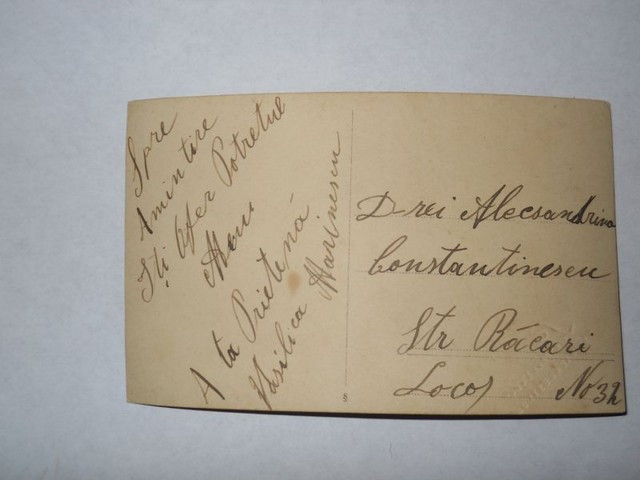 Spre
Amintire
Iți Ofer Potretul
Meu
A ta Prietenă
Vasilica Marinescu
D-rei Alecsandrina
Constantinescu
Str Răcari
Locoj No 32